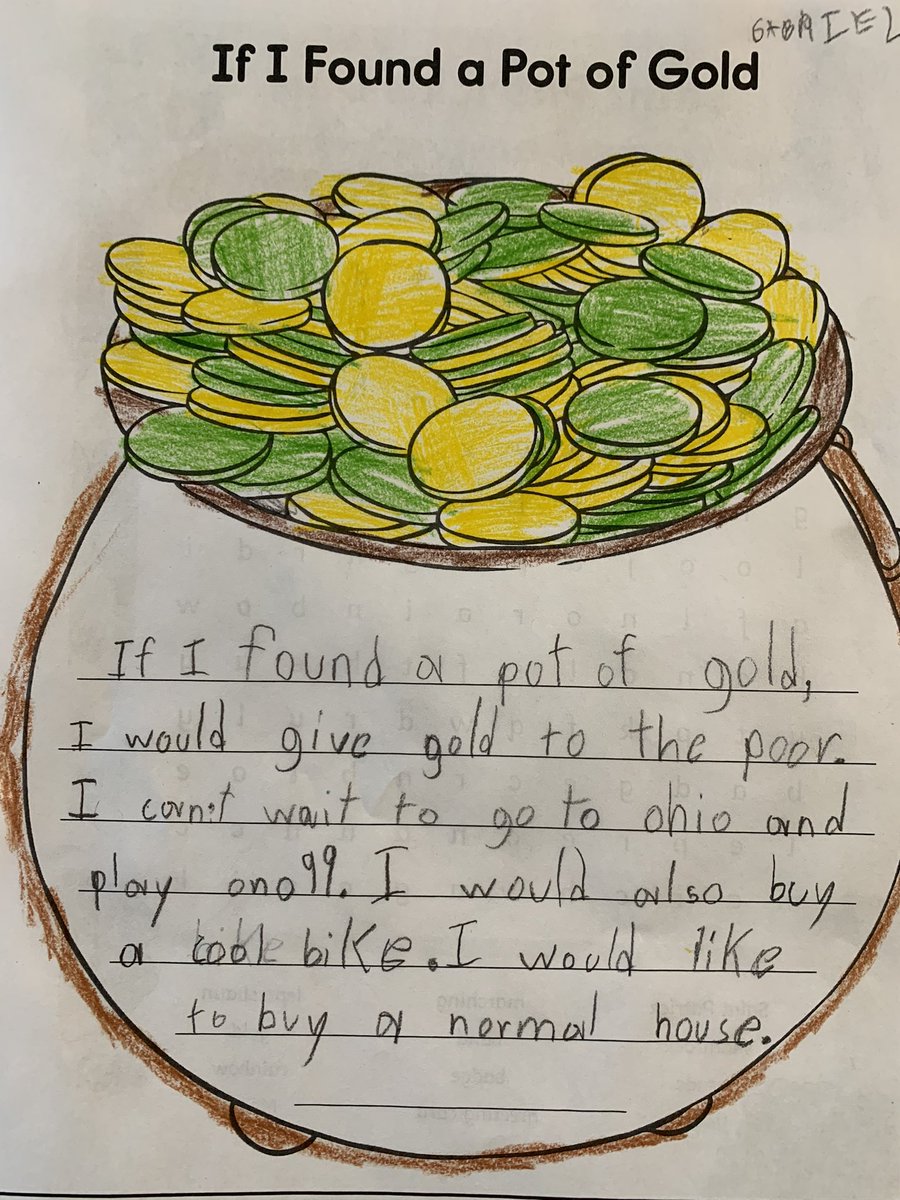 GABRIEL
If I Found a Pot of Gold
If I found a pot of gold,
I would give gold to the poor.
I can't wait to go to ohio and
play ono 99. I would also buy
a cool bike. I would like
to buy a normal house.